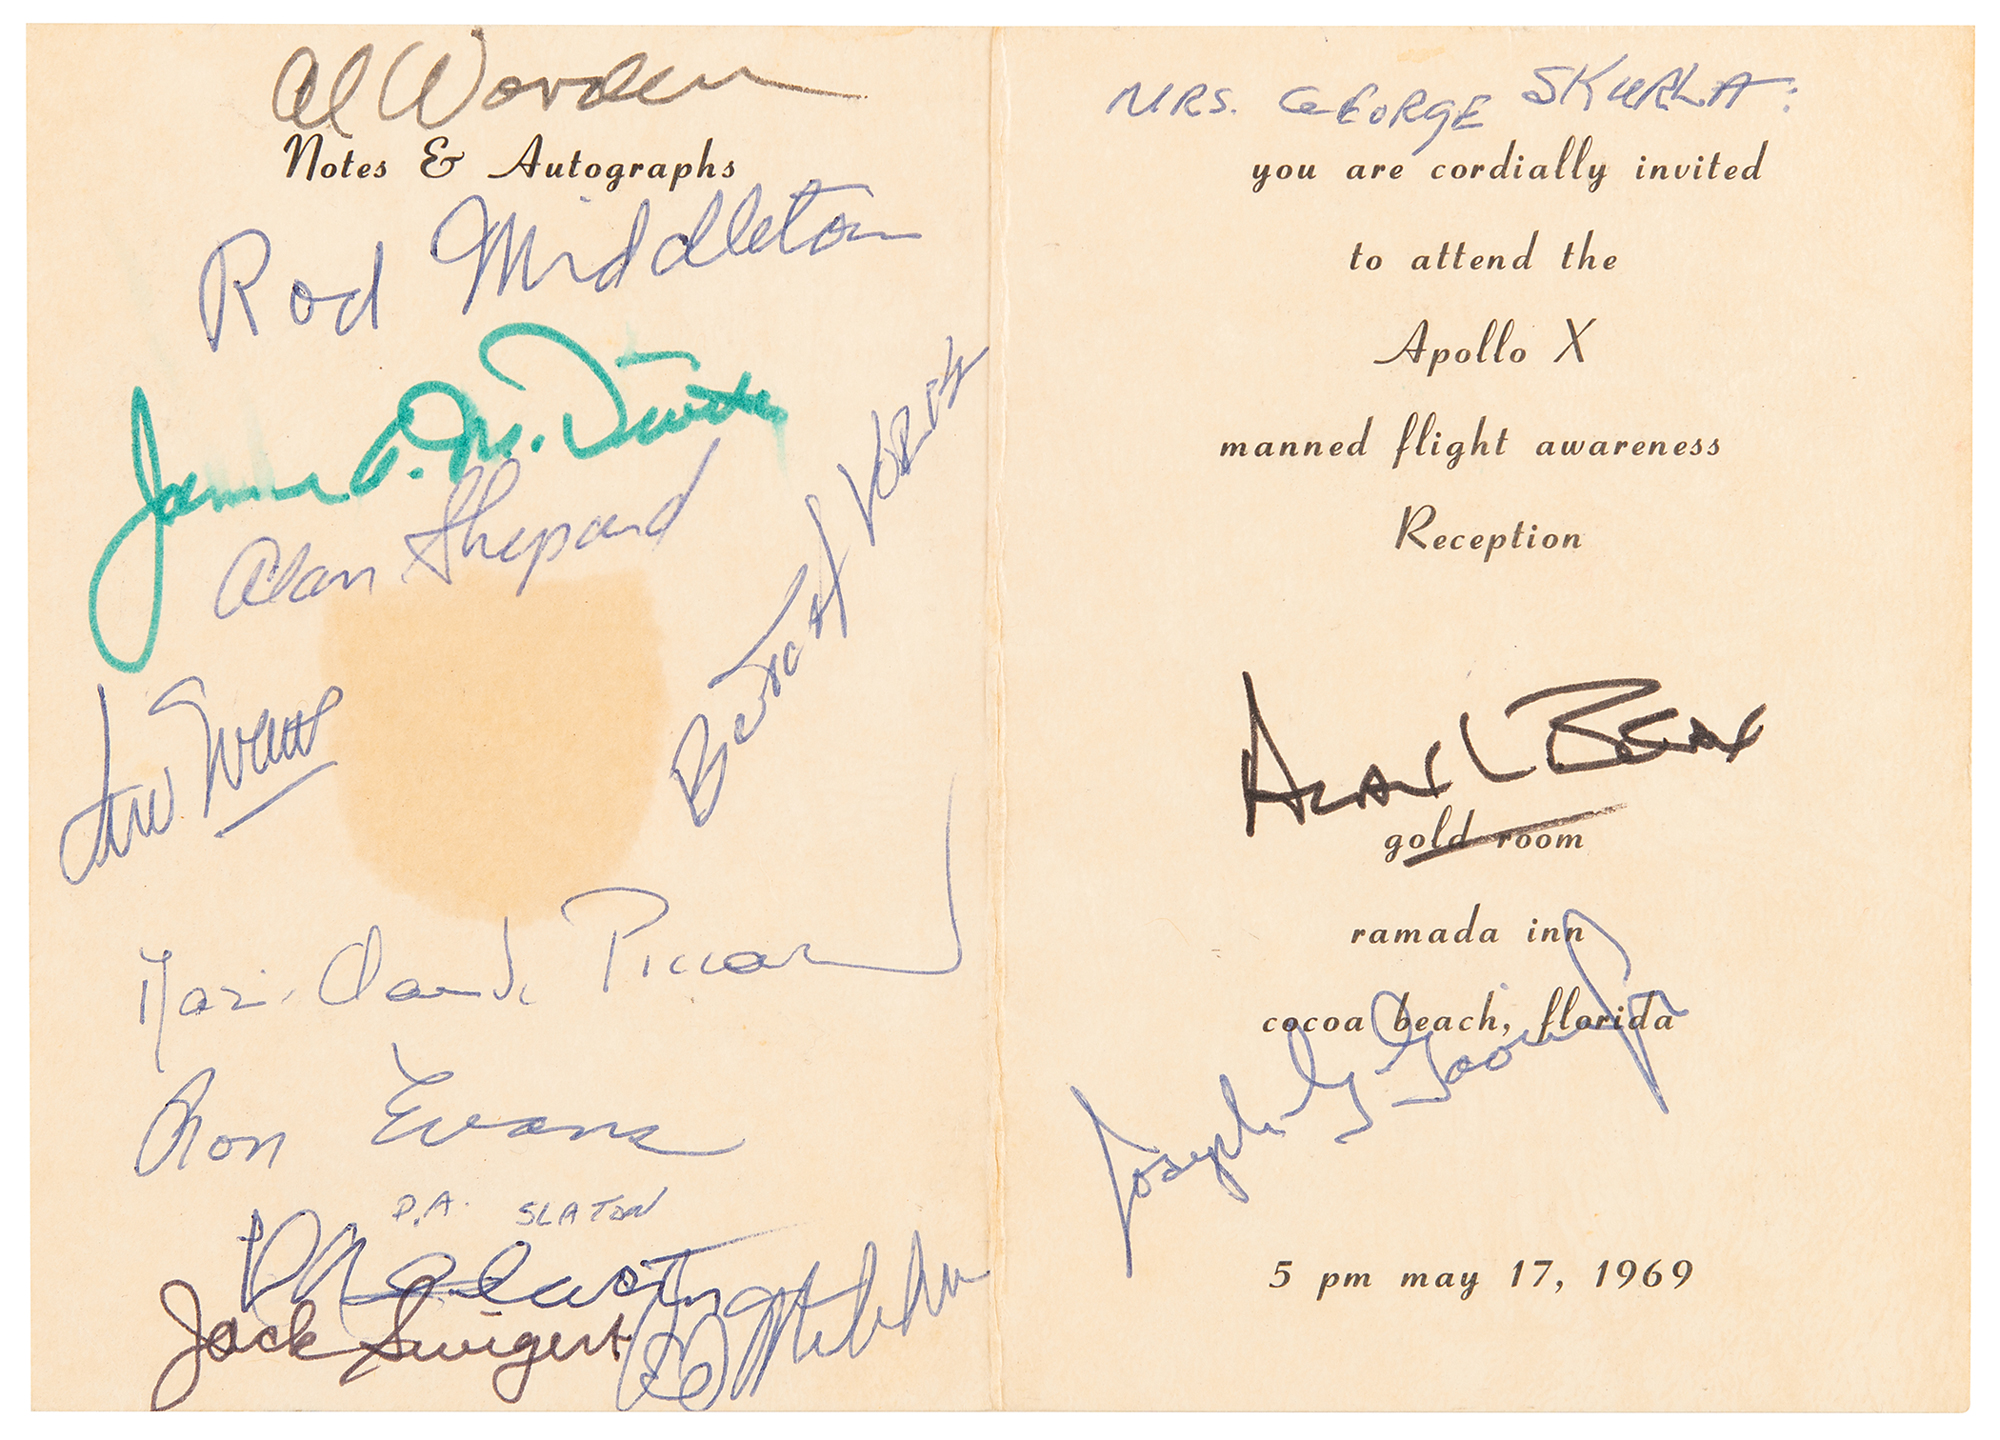 Al Worden
Notes & Autographs
Rod Middleton
James A. McDivitt
Alan Shepard
Ron Evans
D.A. SLATON
Jack Swigert
Ed Mitchell
MRS. GEORGE SKURLA:
you are cordially invited
to attend the
Apollo X
manned flight awareness
Reception
Alan L Bean
gold room
ramada inn
cocoa beach, florida
Joseph G
5 pm may 17, 1969